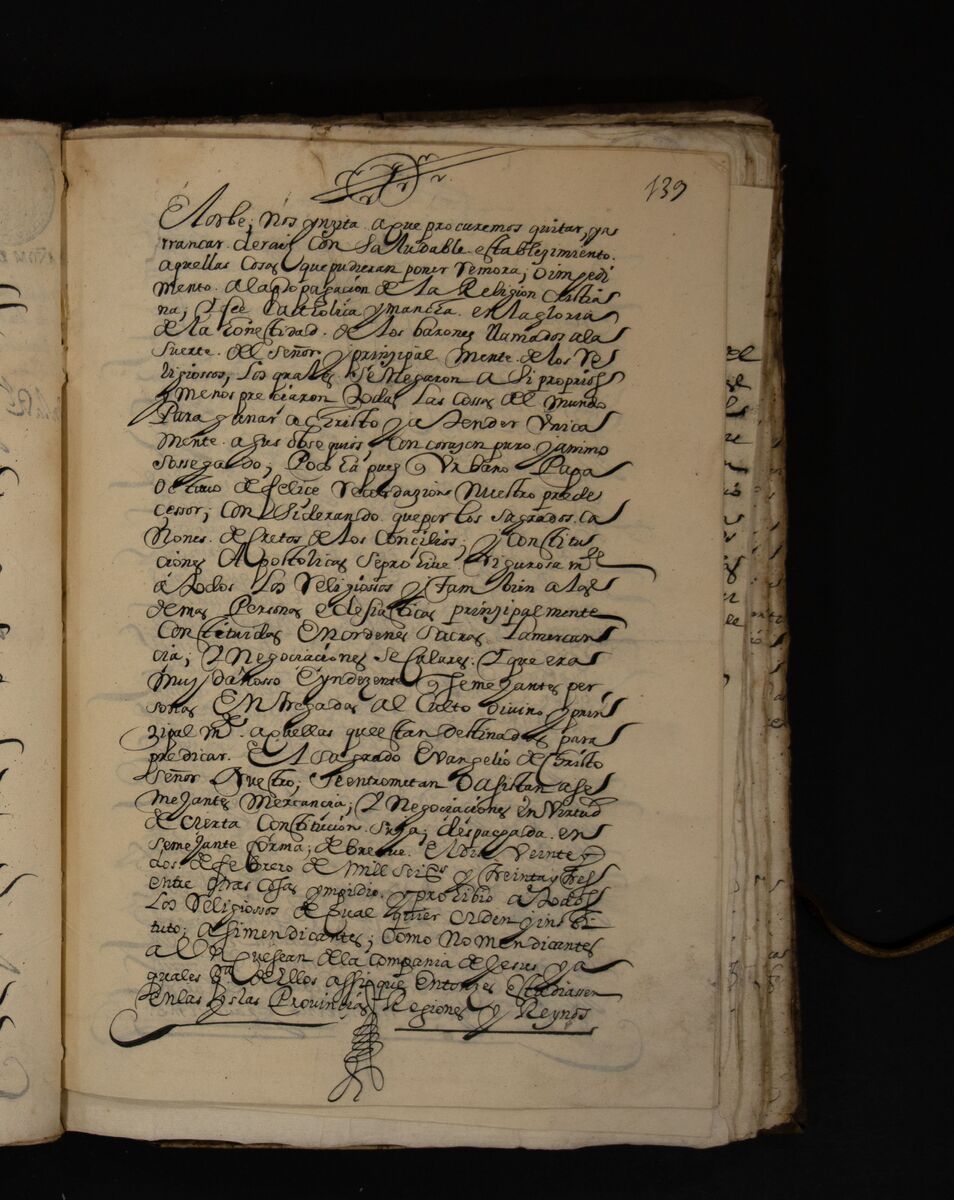 139
El orbe; nos ynzita aque procuremos quitar, yar
rrancar de raiz con Saludable establezimiento
aquellas Cosas que pudieran poner Remora, o impedi
mento a la propagacion de la Religion Cristia
na, y fee Catholica y mancha en la gloria
de la honestidad de los barones llamados ala
Suerte del Señor y prinzipal mente de los Re
ligiossos, los quales se Negaron a Si proprios
y menos preciaron todas las cosas del mundo
Para ganar a Cristo ya tender Unica
mente a sus obsequios con corazon puro y animo
Sossegado; Poco ha pues q Urbano Papa
Octavo de felice Recordazion Nuestro prede
cessor; considerando que por los Sagrados Ca
nones decretos de los Concilios; y Constitu
ciones Apostolicas Se prohive Rigurosa mte
a todos los Religiosos y tambien a las
demas Personas eclesiasticas prinzipalmente
Constituidas En ordenes Sacros la mercan
cia; y Negociaciones Seculares. y que era
muy dañosso e yndezente q Semejantes per
sonas Entregadas al Culto Divino y prin
zipal mte aquellas que estan destinadas para
predicar El Sagrado Evangelio de Cristo
Señor Nuestro; Se entrometan o asistan a Se
mejantes Mercancia; y Negociaciones en Virtud
de Cierta Constitucion Suya; despachada en
Semejante forma; de breve. El dia Veinte y
dos de febrero de mill Seisos y treinta y tres
entre otras cosas ympidio y prohibio a todos
los Religiossos de qual quier Orden y insti
tuto; asi mendicantes; como No mendicantes
aUn que sean de la Compania de Jesus y a
quales qa de Ellos assi que entonzes Estudiassen
en las yslas Provincias Regiones y Reynos